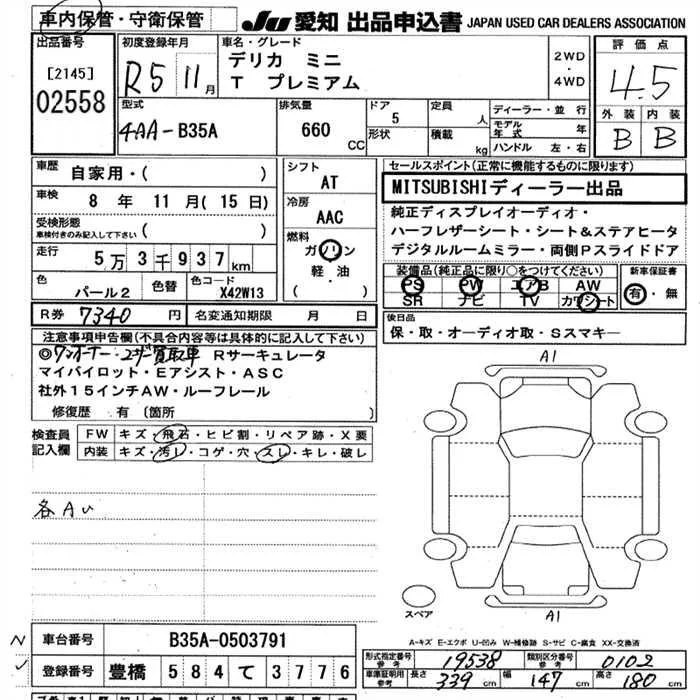 車内保管・守衛保管 JU 愛知 出品申込書 JAPAN USED CAR DEALERS ASSOCIATION
出品番号
[2145]
02558
初度登録年月
R5 11月
車名・グレード
デリカ ミニ
T プレミアム
2WD
・
4WD
評価点
4.5
外装 内装
B B
型式
4AA-B35A
排気量
660 CC
ドア
5
形状
定員
人
積載
kg
ディーラー・並行
モデル年式 年
ハンドル 左・右
車歴 自家用・( )
車検 8 年 11 月 (15 日)
受検形態
車検付きのみ記入して下さい ( )
走行 5万3千937km
色 パール2
色替
色コード X42W13
シフト
AT
冷房
AAC
燃料
ガソリン
軽・油
( )
セールスポイント(正常に機能するものに限ります)
MITSUBISHIディーラー出品
純正ディスプレイオーディオ・
ハーフレザーシート・シート&ステアヒータ
デジタルルームミラー・両側Pスライドドア
装備品(純正品に限り○をつけてください)
PS PW エアB AW
SR ナビ TV カワシート
新車保証書
有・無
R券 7340 円
名変通知期限 月 日
後日品
保・取・オーディオ取・Sスマキー
注意事項申告欄(不具合内容等は具体的に記入して下さい)
◎ワンオーナー・ユーザー買取車 Rサーキュレータ
マイパイロット・Eアシスト・ASC
社外15インチAW・ルーフレール
修復歴 有 〔箇所
検査員
記入欄
FW キズ・飛石・ヒビ割・リペア跡・X要
内装 キズ・汚レ・コゲ・穴・スレ・キレ・破レ
各AU
A1
A1
スペア
A-キズ E-エクボ U-凹み W-補修跡 S-サビ C-腐食 XX-交換済
N
車台番号 B35A-0503791
登録番号 豊橋 584 て 3776
形式指定番号
参考 19538
類別区分番号
参考 0102
車庫証明用
参考 長さ 339 cm 幅 147 cm 高さ 180 cm